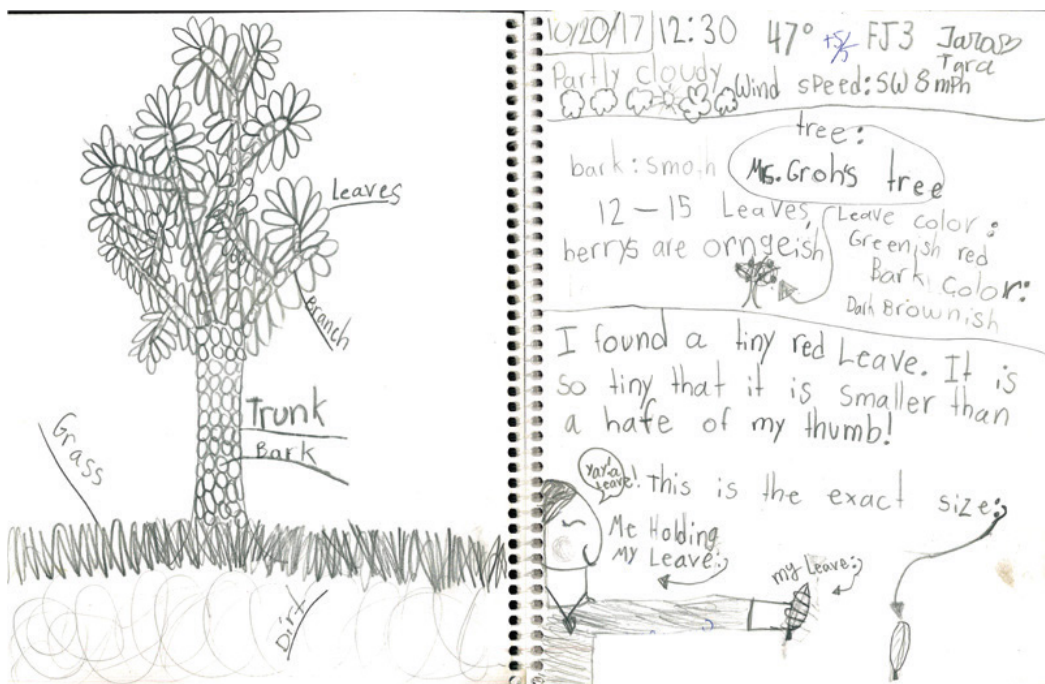 Leaves
Branch
Trunk
Bark
Grass
Dirt
10/20/17 12:30 47° +5/5 FJ3 Tara
Tara
Partly cloudy Wind speed: SW 8 mph
tree:
bark: smoth Ms. Groh's tree
12 - 15 Leaves,
berrys are orngeish
Leave color:
Greenish red
Bark color:
Dark Brownish
I found a tiny red Leave. It is
so tiny that it is smaller than
a hafe of my thumb!
Yay! a
Leave!
this is the exact size:
Me Holding
My Leave:
my Leave: